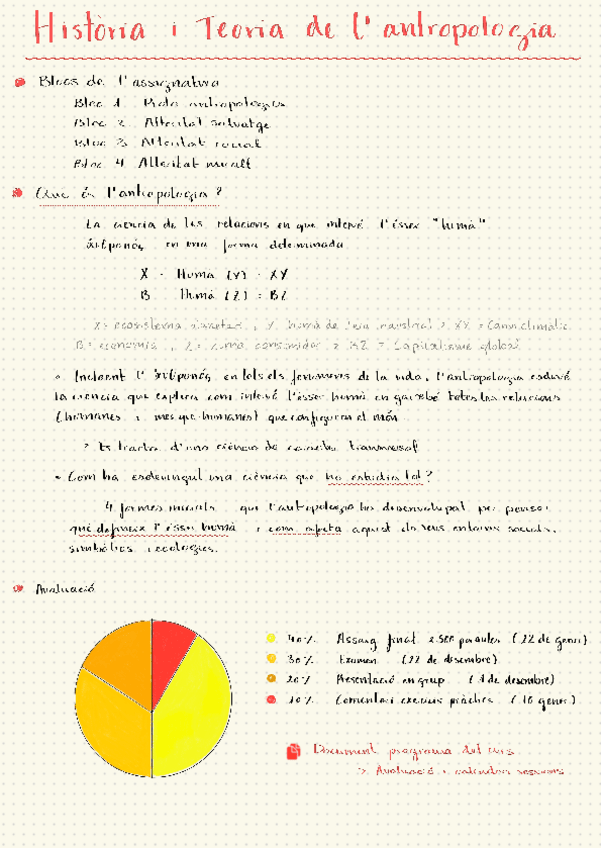 Història i Teoria de l'antropologia
Blocs de l'assignatura
Bloc 1. Proto antropologia
Bloc 2. Alteritat salvatge
Bloc 3. Alteritat social
Bloc 4. Alteritat
Que és l'antropologia?
La ciència de les relacions en que intervé l'ésser "humà"
ἄνθρωπός en una forma determinada
X - Humà (Y) = XY
B Humà (Z) = BZ
X= ecosistema planetari, Y= humà de l'era industrial → XY = Canvi climàtic
B= economia, Z= humà consumidor → BZ = Capitalisme global
Incloent l' ἄνθρωπός en tots els fenomens de la vida, l'antropologia esdevé
la ciència que explica com intervé l'ésser humà en gairebé totes les relacions
(humanes i més-que-humanes) que configuren el món
Es tracta d'una ciència de caràcter transversal
Com ha esdevingut una ciència que ho estudia tot?
4 formes que l'antropologia ha desenvolupat per pensar
què defineix l'ésser humà i com afecta aquest els seus entorns socials,
simbòlics i ecològics.
Avaluació
40% Assaig final 2.500 paraules (22 de gener)
30% Examen (22 de desembre)
20% Presentació en grup (1 de desembre)
10% Comentari exercicis pràctics (16 gener)
Document programa del curs
Avaluació i calendari sessions